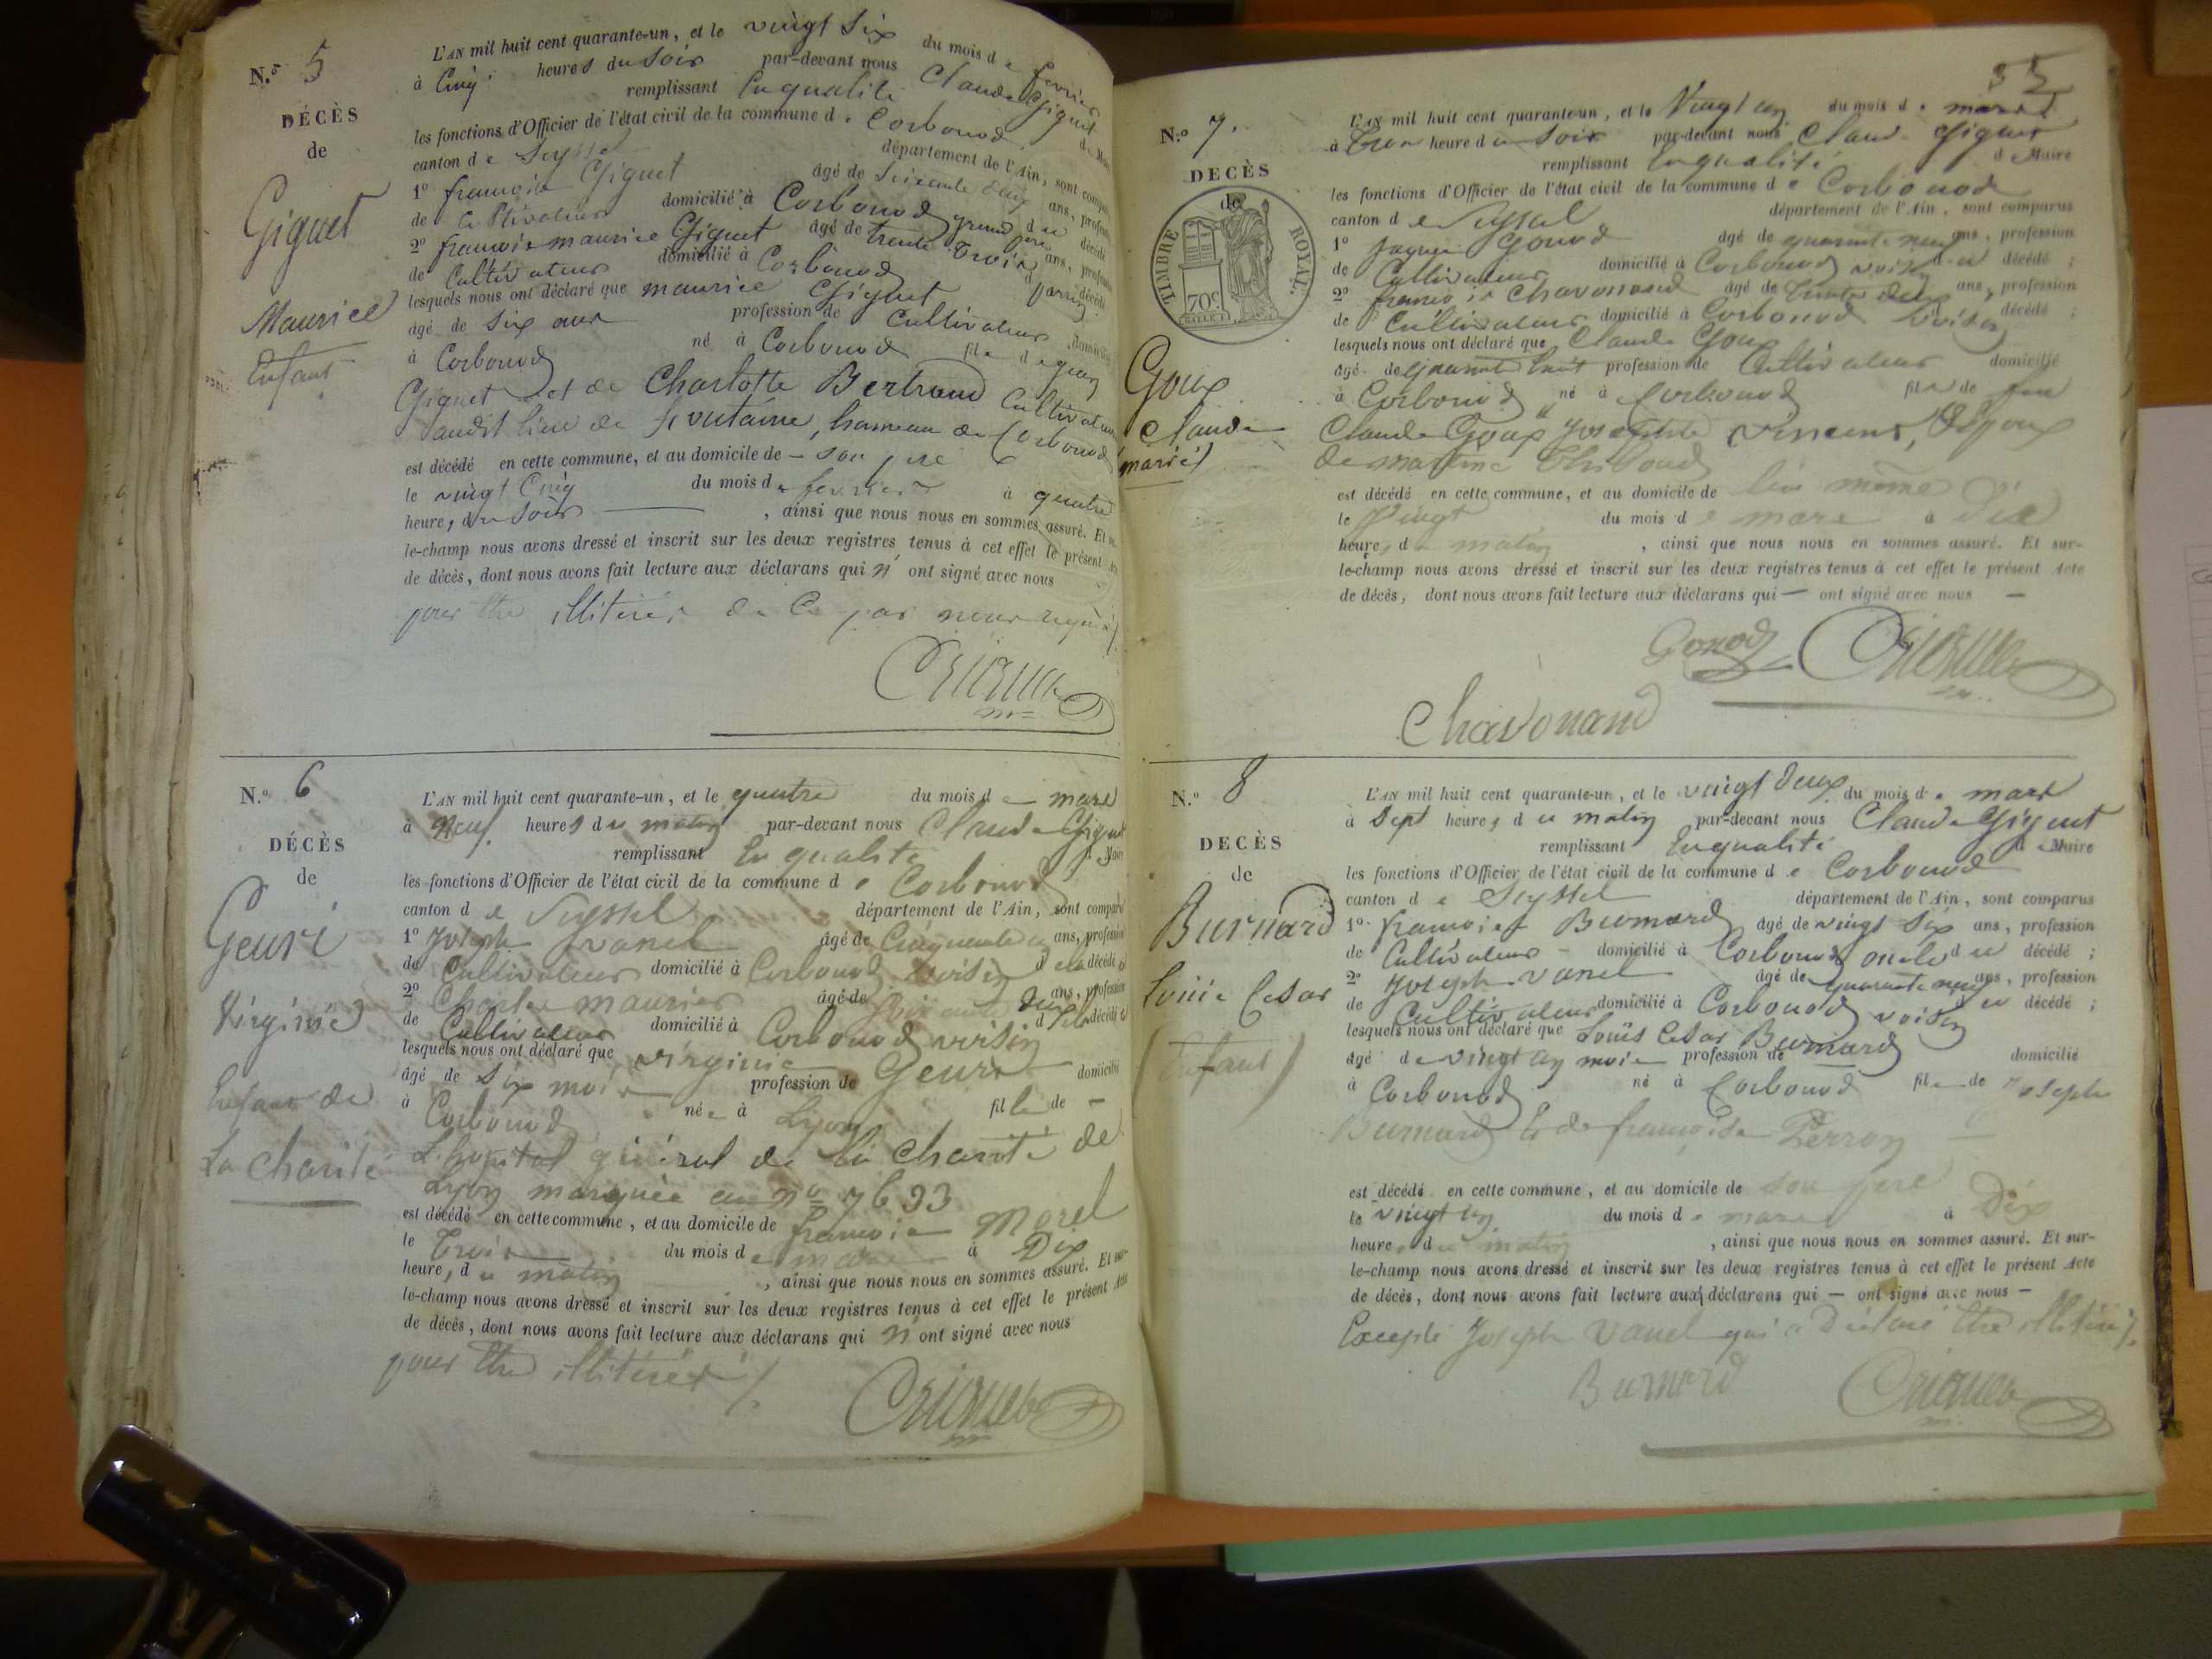 N.º 5
DÉCÈS
de
Giguet
Maurice
Enfant
L'AN mil huit cent quarante-un, et le vingt six du mois de fevrier
à Cinq heures du soir par-devant nous Claude Giguet
remplissant En qualité de Maire
les fonctions d'Officier de l'état civil de la commune de Corbonod
canton de Seyssel département de l'Ain, sont
1º françois Giguet âgé de Soixante ans,
de Cultivateur domicilié à Corbonod grand père du décédé
2º françois maurice Giguet âgé de trente trois ans,
de Cultivateur domicilié à Corbonod décédé
lesquels nous ont déclaré que maurice Giguet
âgé de Six ans profession de Cultivateur
à Corbonod né à Corbonod fils de
Giguet et de Charlotte Bertrand Cultivateurs
audit lieu de fontaine, hameau de Corbonod
est décédé en cette commune, et au domicile de son père
le vingt Cinq du mois de fevrier à quatre
heures du soir, ainsi que nous nous en sommes assuré. Et
le-champ nous avons dressé et inscrit sur les deux registres tenus à cet effet le présent
de décès, dont nous avons fait lecture aux déclarans qui n' ont signé avec nous
pour être illitérés de ce par nous requis
N.º 6
DÉCÈS
de
Geuri
Virginie
Enfant de
La charité
L'AN mil huit cent quarante-un, et le quatre du mois de mars
à Neuf heures du matin par-devant nous Claude Giguet
remplissant En qualité de Maire
les fonctions d'Officier de l'état civil de la commune de Corbonod
canton de Seyssel département de l'Ain, sont
1º Joseph Vanel âgé de Cinquante ans, profession
de Cultivateur domicilié à Corbonod voisin de la décédée
2º Charles maurier âgé de ans, profession
de Cultivateur domicilié à Corbonod voisin de la décédée
lesquels nous ont déclaré que virginie Geuri
âgé de Six mois profession de domicilié
à Corbonod née à Lyon fille de —
L'hopital général de la charité de
Lyon marquée au nº 7693
est décédé en cette commune, et au domicile de françois Morel
le Trois du mois de mars à Dix
heures du matin, ainsi que nous nous en sommes assuré. Et sur-
le-champ nous avons dressé et inscrit sur les deux registres tenus à cet effet le présent Acte
de décès, dont nous avons fait lecture aux déclarans qui n' ont signé avec nous
pour être illitérés
35
N.º 7.
DECÈS
de
TIMBRE ROYAL.
70c
Goux
Claude
marié
L'AN mil huit cent quarante-un, et le Vingt un du mois de mars
à Trois heures du soir par-devant nous Claude Giguet
remplissant En qualité de Maire
les fonctions d'Officier de l'état civil de la commune de Corbonod
canton de Seyssel département de l'Ain, sont comparus
1º Jaques Gonod âgé de quarante neuf ans, profession
de Cultivateur domicilié à Corbonod voisin du décédé ;
2º françois Chavonand âgé de trente deux ans, profession
de Cultivateur domicilié à Corbonod voisin décédé ;
lesquels nous ont déclaré que Claude Goux
âgé de quarante huit profession de Cultivateur domicilié
à Corbonod né à Corbonod fils de feu
Claude Goux & Josephte vincent, Epoux
de martine Thiboud
est décédé en cette commune, et au domicile de lui même
le Vingt du mois de mars à Dix
heures du matin, ainsi que nous nous en sommes assuré. Et sur-
le-champ nous avons dressé et inscrit sur les deux registres tenus à cet effet le présent Acte
de décès, dont nous avons fait lecture aux déclarans qui — ont signé avec nous —
Gonod
Chavonand
N.º 8
DÉCÈS
de
Burnard
Louis Cesar
(Enfant)
L'AN mil huit cent quarante-un, et le vingt deux du mois de mars
à Sept heures du matin par-devant nous Claude Giguet
remplissant En qualité de Maire
les fonctions d'Officier de l'état civil de la commune de Corbonod
canton de Seyssel département de l'Ain, sont comparus
1º françois Burnard âgé de vingt six ans, profession
de Cultivateur domicilié à Corbonod oncle du décédé ;
2º Joseph Vanel âgé de quarante neuf ans, profession
de Cultivateur domicilié à Corbonod voisin du décédé ;
lesquels nous ont déclaré que Louis Cesar Burnard
âgé de vingt un mois profession de domicilié
à Corbonod né à Corbonod fils de Joseph
Burnard & de françoise Perron —
est décédé en cette commune, et au domicile de son père
le vingt un du mois de mars à Dix
heures du matin, ainsi que nous nous en sommes assuré. Et sur-
le-champ nous avons dressé et inscrit sur les deux registres tenus à cet effet le présent Acte
de décès, dont nous avons fait lecture aux déclarans qui — ont signé avec nous —
Excepté Joseph Vanel qui a Déclaré être illitéré
Burnard